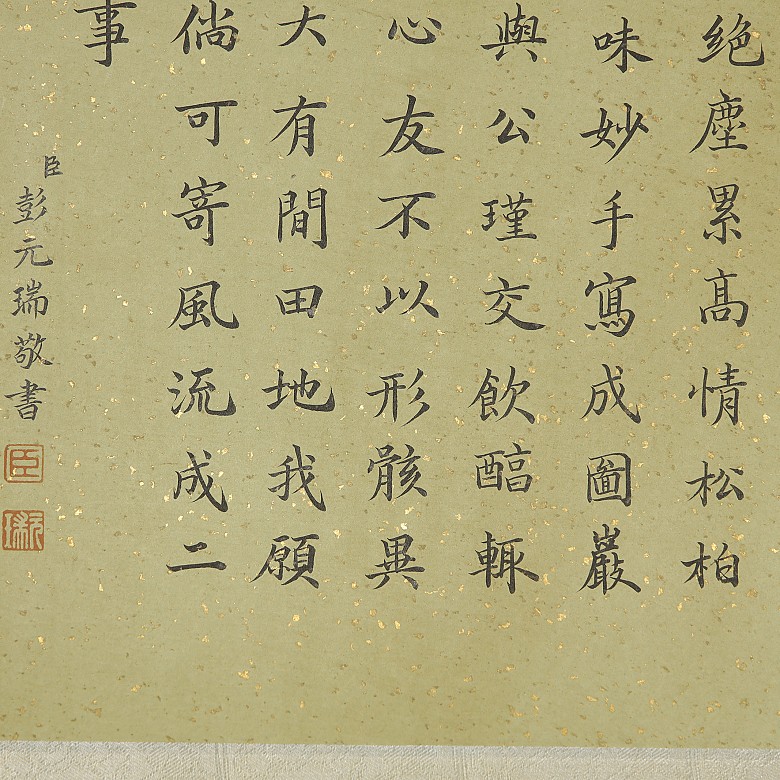 絶塵累高情松柏
味妙手寫成圖巖
與公瑾交飲醕輒
心友不以形骸異
大有間田地我願
倘可寄風流成二
事
臣彭元瑞敬書
臣